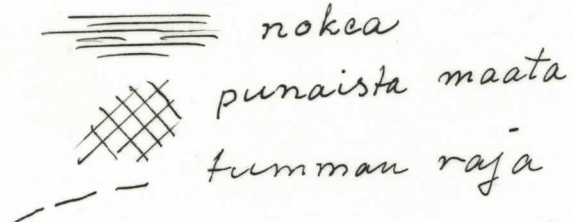 nokea
punaista maata
tumman raja